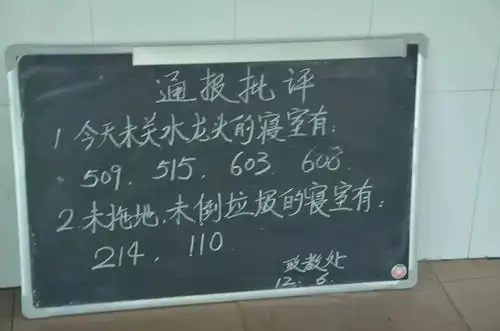 通报批评
1 今天未关水龙头的寝室有:
509. 515. 603. 608.
2 未拖地.未倒垃圾的寝室有:
214. 110
政教处
12. 6.